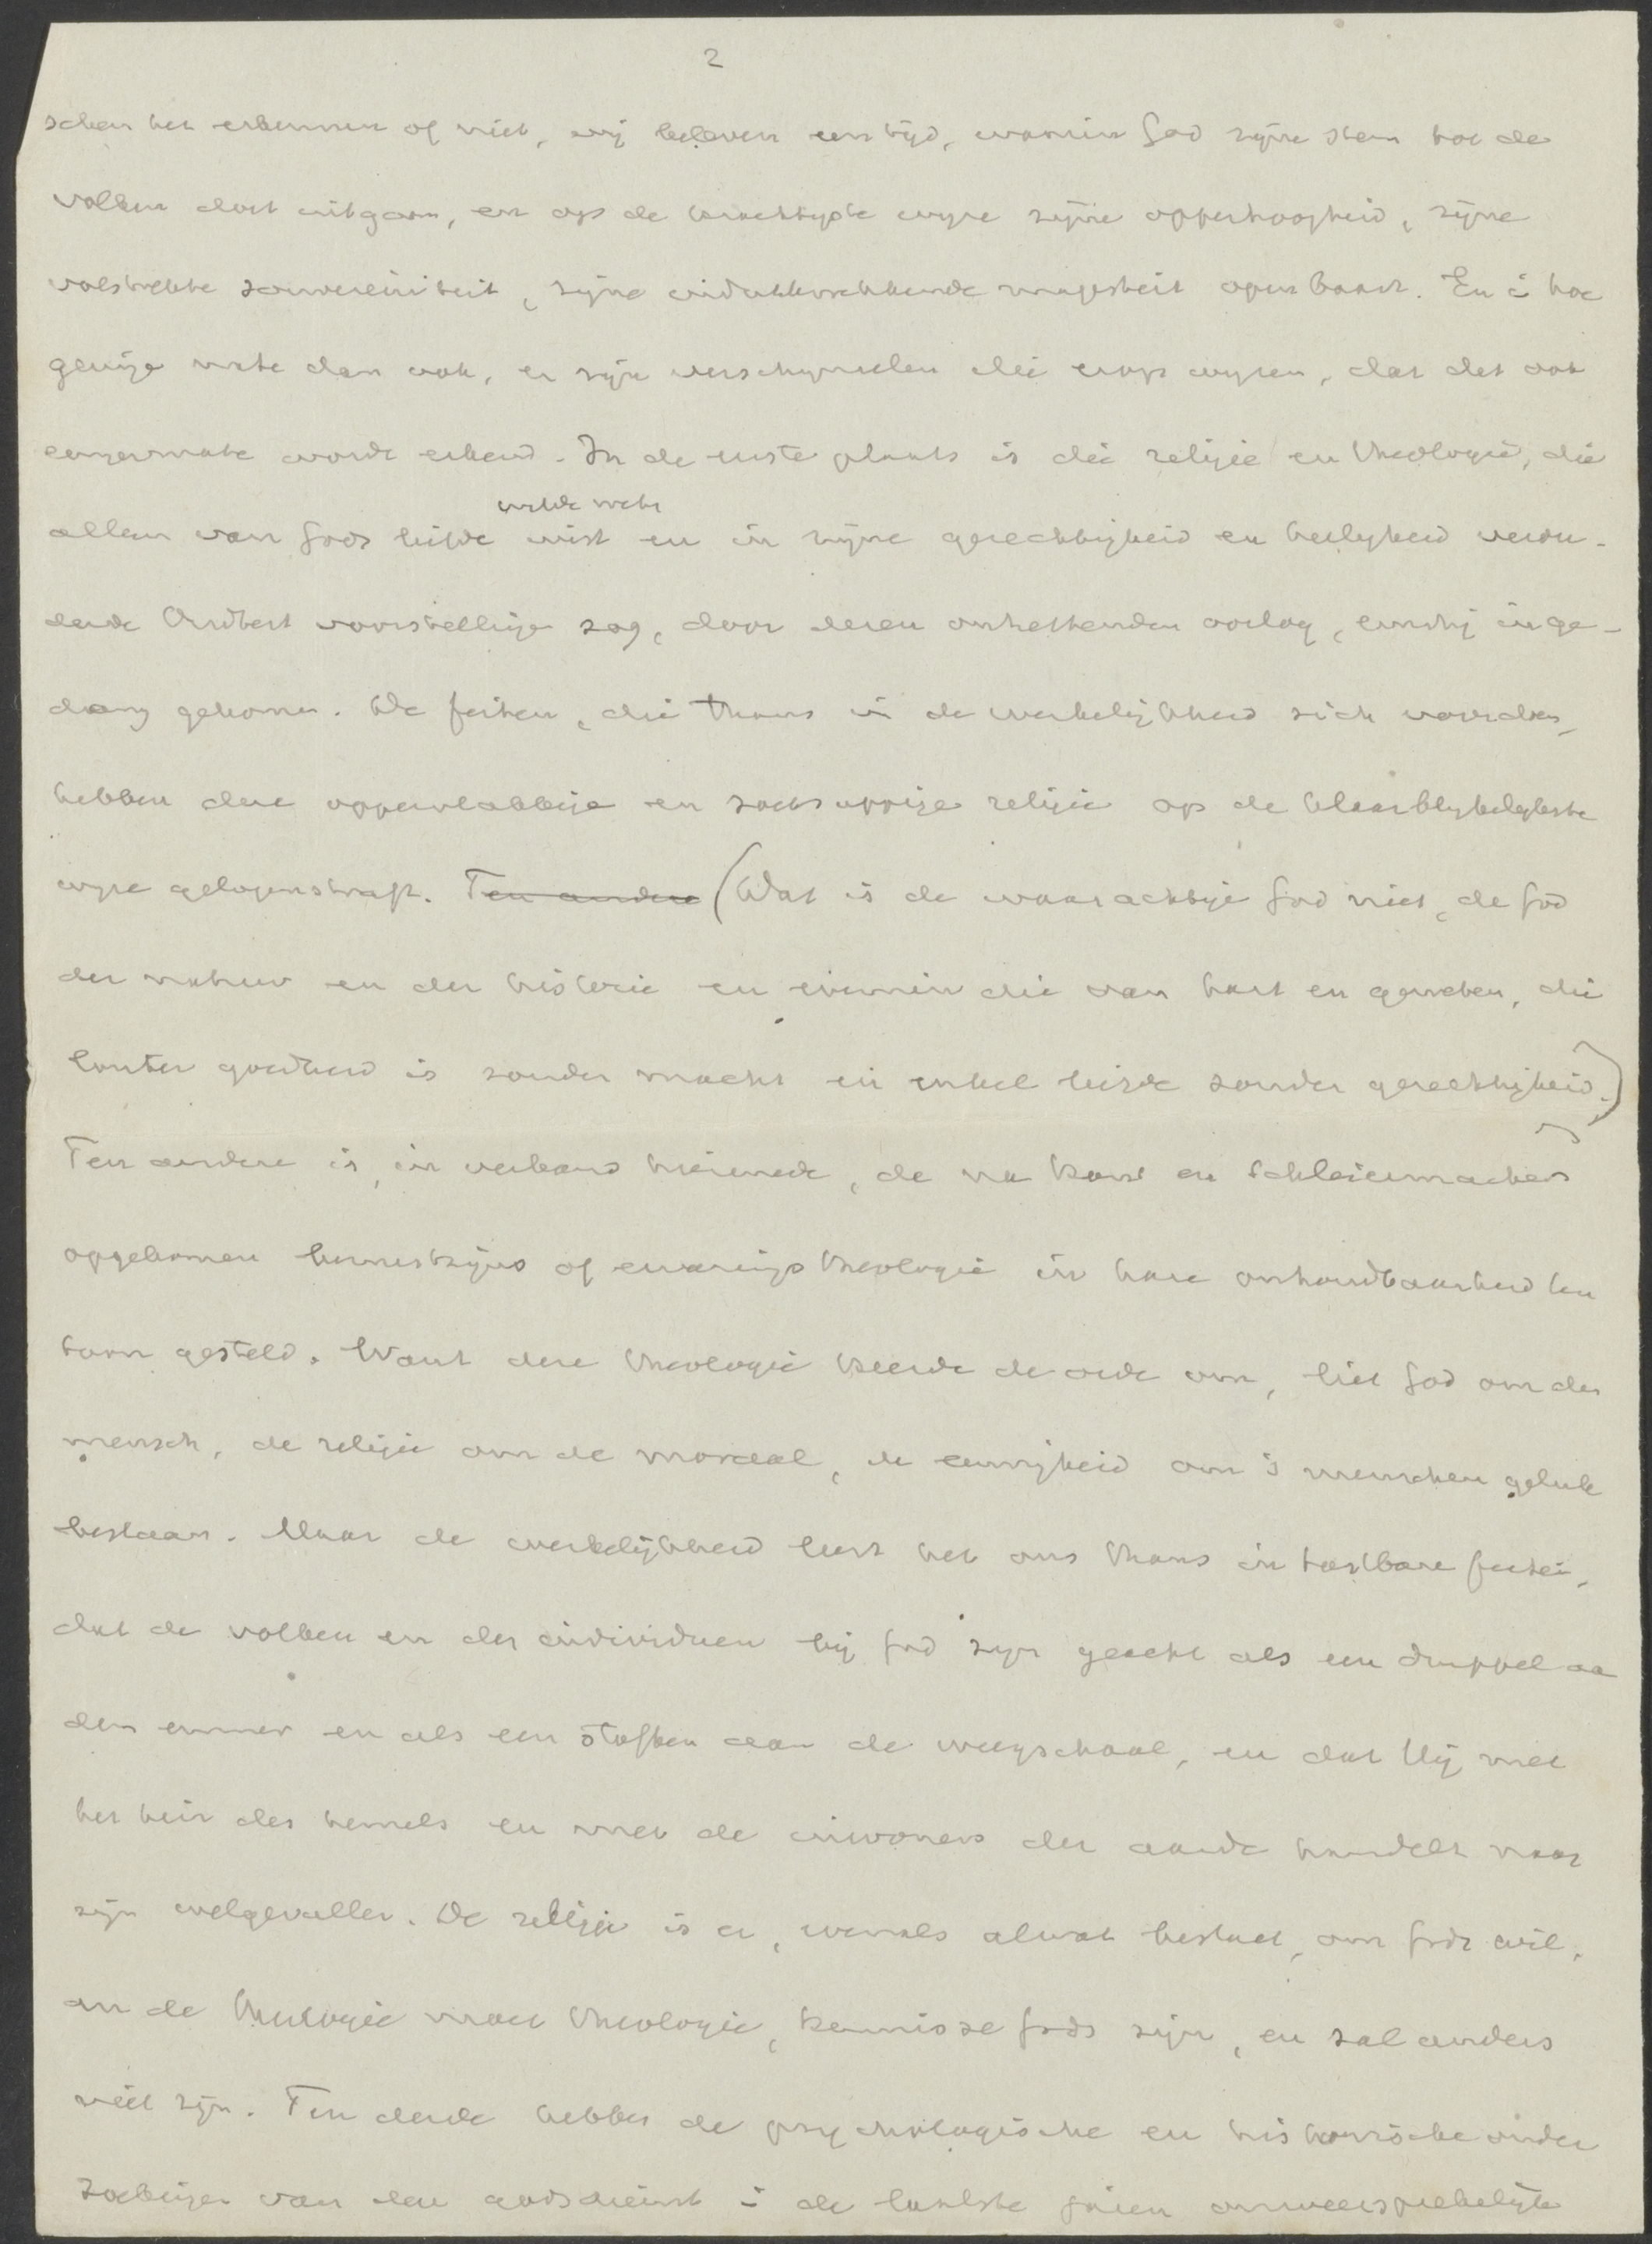 2
schen het erkennen of niet, wij beleven een tijd, waarin God zijne stem tot de
volken doet uitgaan, en op de krachtigste wyze zijne opperhoogheid, zijne
volstrekte souvereiniteit, zijne indrukwekkende majesteit openbaart. En in hoe
geringe mate dan ook, er zijn verschynselen die erop wyzen, dat dit ook
eenigermate wordt erkend. In de eerste plaats is die religie en theologie, die
wilde weten
alleen van Gods liefde wist en in zijne gerechtigheid en heiligheid verou-
derde Oudtest voorstellingen zag, door dezen ontzettenden oorlog, ernstig in ge-
drang gekomen. De feiten, die thans in de werkelijkheid zich voordoen,
hebben deze oppervlakkige en zoetsappige religie op de klaarblykelykste
wyze gelogenstraft. Ten andere (Dat is de waarachtige God niet, de God
der natuur en der historie en evenmin die van hart en geweten, die
louter goedheid is zonder macht en enkel liefde zonder gerechtigheid.)
Ten andere is, in verband hiermede, de na Kant en Schleiermacher
opgekomen bewustzijns of ervarings theologie in hare onhoudbaarheid ten
toon gesteld. Want deze theologie keerde de orde om, liet God om den
mensch, de religie om de moraal, de eeuwigheid om 's menschen geluk
bestaan. Maar de werkelijkheid leert het ons thans in tastbare feiten,
dat de volken en de individuen bij God zijn geacht als een druppel aan
den emmer en als een stofken aan de weegschaal, en dat Hij met
het heir des hemels en met de inwoners der aarde handelt naar
zijn welgevallen. De religie is er, evenals alwat bestaat, om Gods wil,
en de theologie moet theologie, kennisse Gods zijn, en zal anders
niet zijn. Ten derde hebben de psychologische en historische onder
zoekingen van den godsdienst in de laatste jaren onweersprekelijk